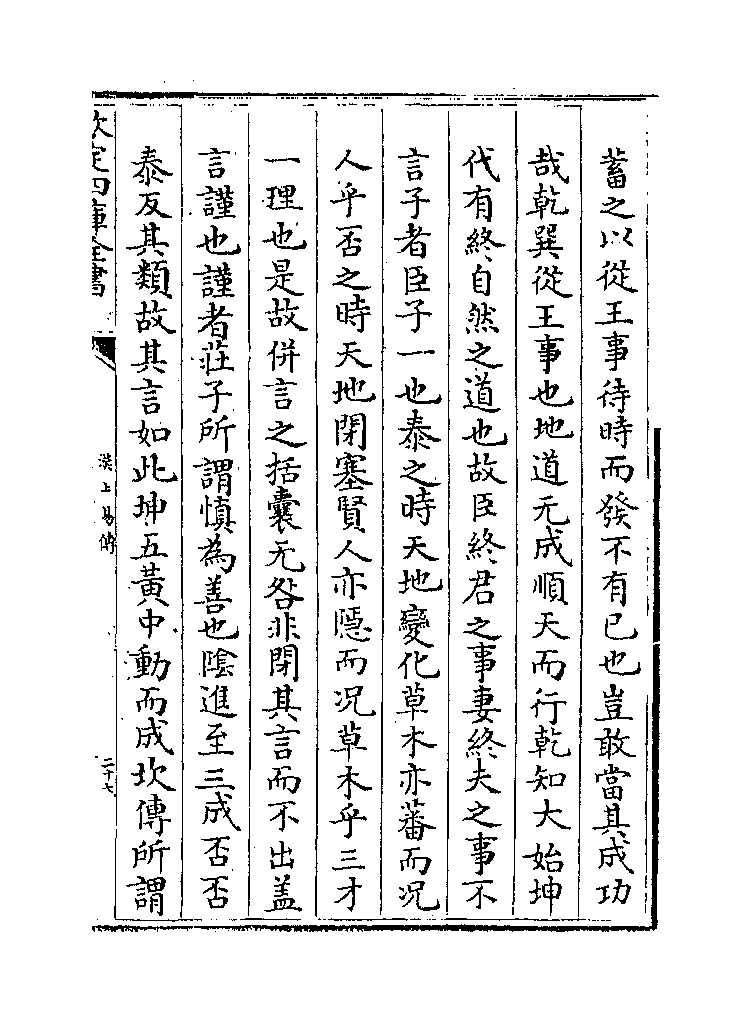 蓄之以從王事待時而發不有已也豈敢當其成功
哉乾巽從王事也地道无成順天而行乾知大始坤
代有終自然之道也故臣終君之事妻終夫之事不
言子者臣子一也泰之時天地變化草木亦蕃而況
人乎否之時天地閉塞賢人亦隱而况草木乎三才
一理也是故併言之括囊无咎非閉其言而不出盖
言謹也謹者莊子所謂慎為善也隂進至三成否否
泰反其類故其言如此坤五黃中動而成坎傳所謂
欽定四庫全書
漢上易傳
二十七